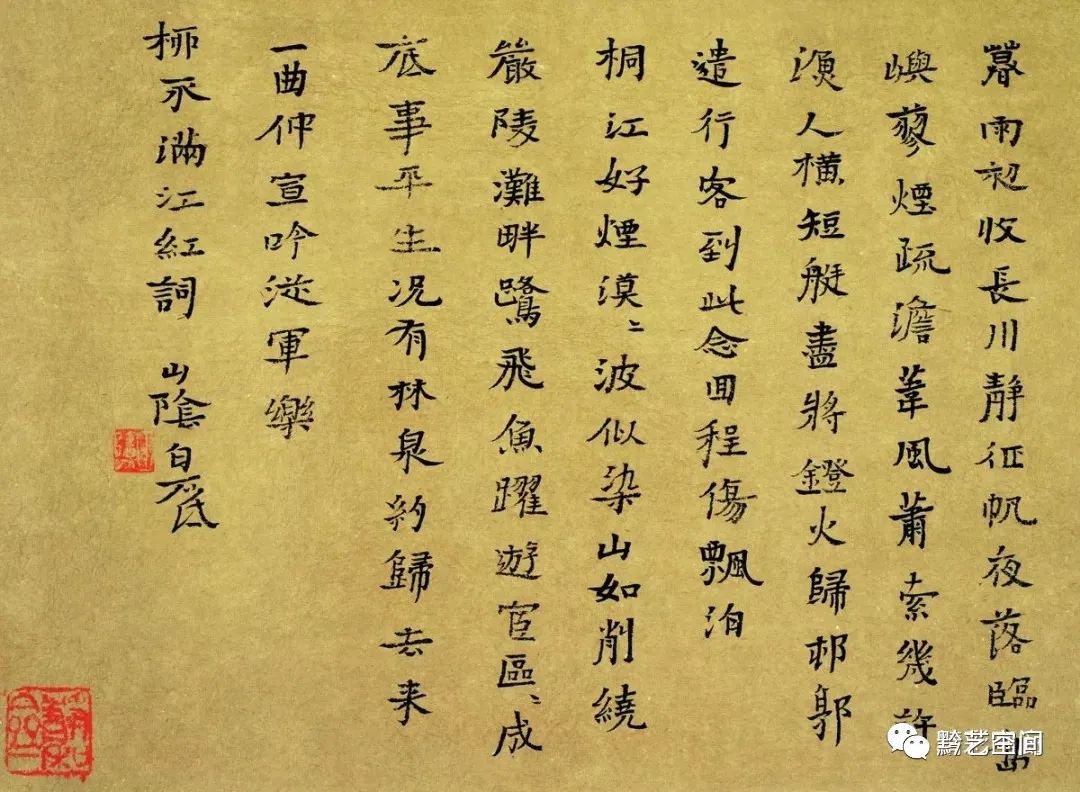 暮雨初收長川靜征帆夜落臨島
嶼蓼煙疏澹葦風蕭索幾許
漁人橫短艇盡將鐙火歸邨郭
遣行客到此念回程傷飄泊
桐江好煙漠〻波似染山如削繞
嚴陵灘畔鷺飛魚躍遊宦區〻成
底事平生況有林泉約歸去来
一曲仲宣吟從軍樂
柳永滿江紅詞 山陰白
黔艺空间